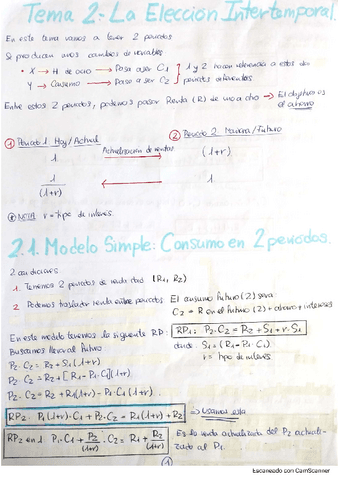 Tema 2: La Elección Intertemporal.
En este tema vamos a tener 2 periodos
Se producen unos cambios de variables
• X → H de ocio → Pasa a ser C1 } 1 y 2 hacen referencia a estos dos
Y → Consumo → Pasa a ser C2 } periodos diferentes
Entre estos 2 periodos, podemos pasar Renta (R) de uno a otro → El objetivo es
el ahorro
① Periodo 1 Hoy/Actual
② Periodo 2 Mañana/Futuro
Actualización de rentas
1 → (1+r)
1/(1+r) ← 1
NOTA r = Tipo de interés.
2.1. Modelo Simple: Consumo en 2 periodos.
2 condiciones
1. Tenemos 2 periodos de renta (R1, R2)
2. Podemos trasladar renta entre periodos.
El consumo futuro (2) será:
C2 = R en el futuro (2) + ahorro + intereses
En este modelo tenemos la siguiente RP:
RP1: P2·C2 = R2 + S1 + r·S1
Buscamos llevar al futuro
donde S1 = (R1 - P1·C1)
r = Tipo de interés
P2·C2 = R2 + S1 (1+r)
P2·C2 = R2 + [R1 - P1·C1](1+r)
P2·C2 = R2 + R1(1+r) - P1·C1 (1+r)
RP2: P1(1+r)·C1 + P2·C2 = R1(1+r) + R2 → Usamos esta
RP2 en 1 P1·C1 + P2/(1+r) · C2 = R1 + R2/(1+r)
Es la renta actualizada del P2 actuali-
zado al P1.
1
Escaneado con CamScanner